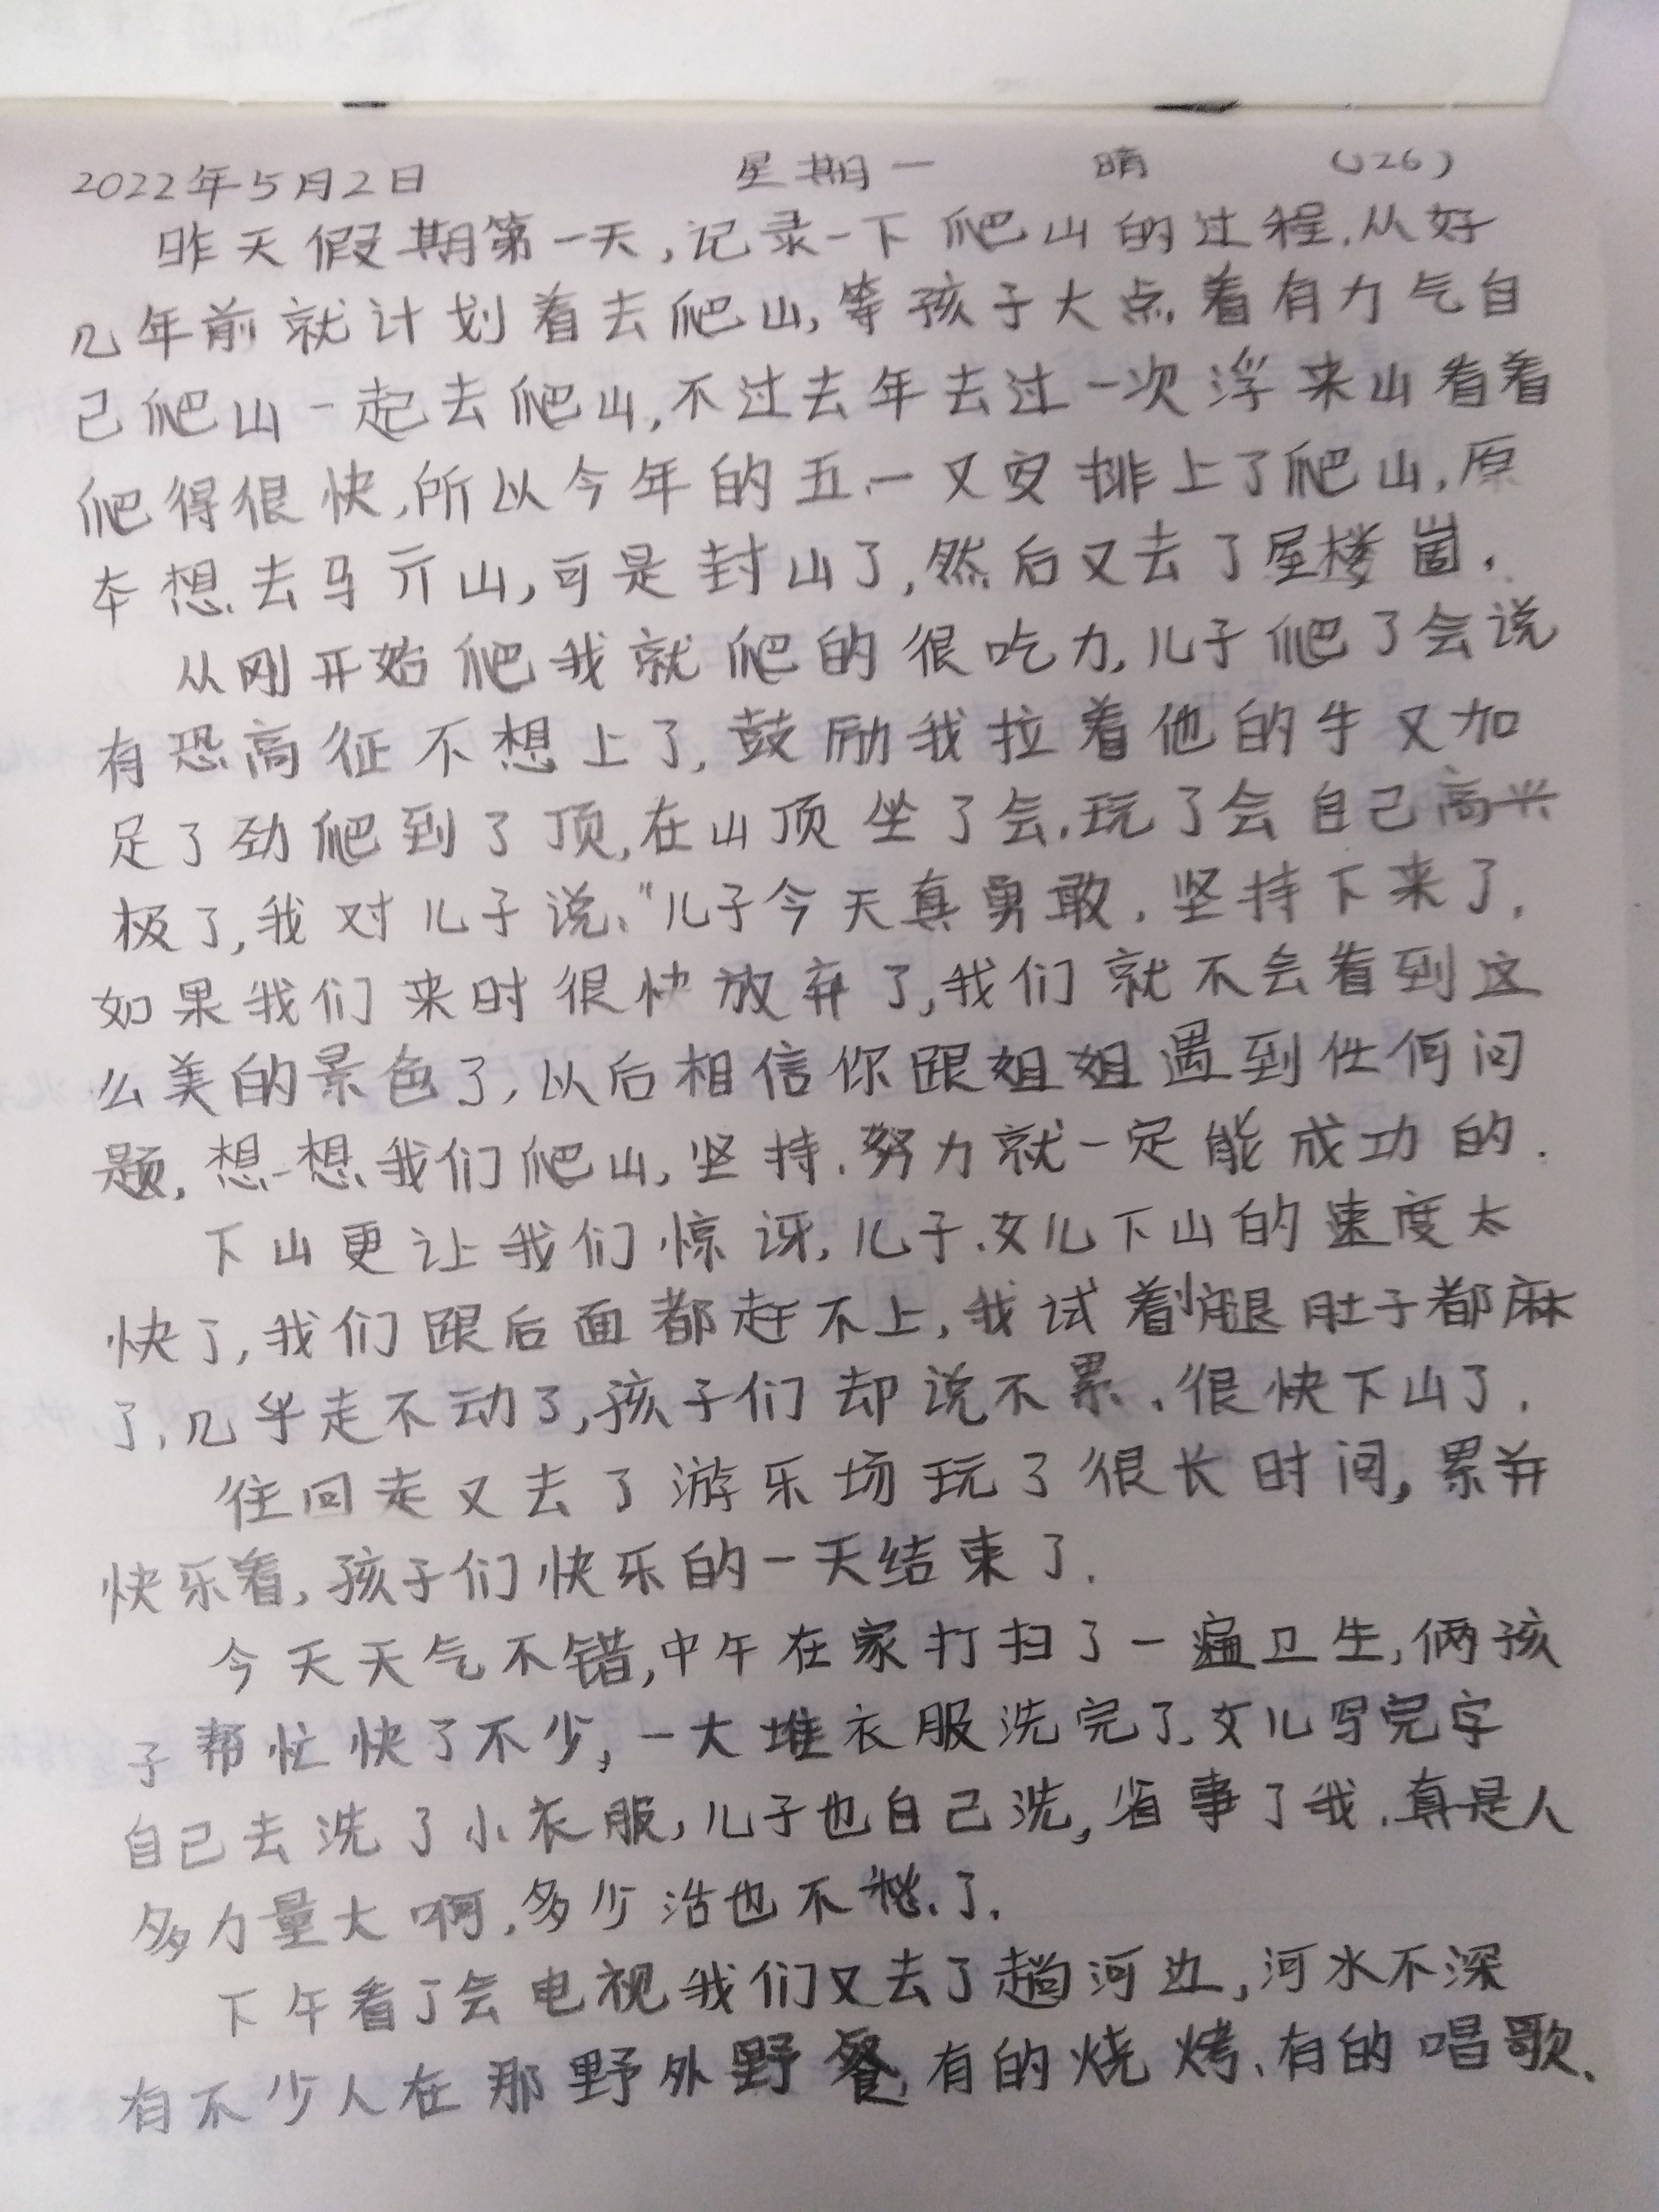 2022年5月2日 星期一 晴 (126)
昨天假期第一天,记录一下爬山的过程.从好
几年前就计划着去爬山,等孩子大点着有力气自
己爬山一起去爬山,不过去年去过一次浮来山看着
爬得很快,所以今年的五一又安排上了爬山,原
本想去马亓山,可是封山了,然后又去了屋楼崮.
从刚开始爬我就爬的很吃力,儿子爬了会说
有恐高征不想上了,鼓励我拉着他的手又加
足了劲爬到了顶,在山顶坐了会.玩了会自己高兴
极了,我对儿子说:"儿子今天真勇敢.坚持下来了.
如果我们来时很快放弃了,我们就不会看到这
么美的景色了,以后相信你跟姐姐遇到任何问
题,想一想我们爬山,坚持.努力就一定能成功的.
下山更让我们惊讶,儿子.女儿下山的速度太
快了,我们跟后面都赶不上,我试着小腿肚子都麻
了,几乎走不动了,孩子们却说不累.很快下山了.
往回走又去了游乐场玩了很长时间,累并
快乐着,孩子们快乐的一天结束了.
今天天气不错,中午在家打扫了一遍卫生,俩孩
子帮忙快了不少,一大堆衣服洗完了,女儿写完字
自己去洗了小衣服,儿子也自己洗,省事了我.真是人
多力量大啊,多少活也不愁了.
下午看了会电视我们又去了趟河边,河水不深
有不少人在那野外野餐,有的烧烤、有的唱歌、